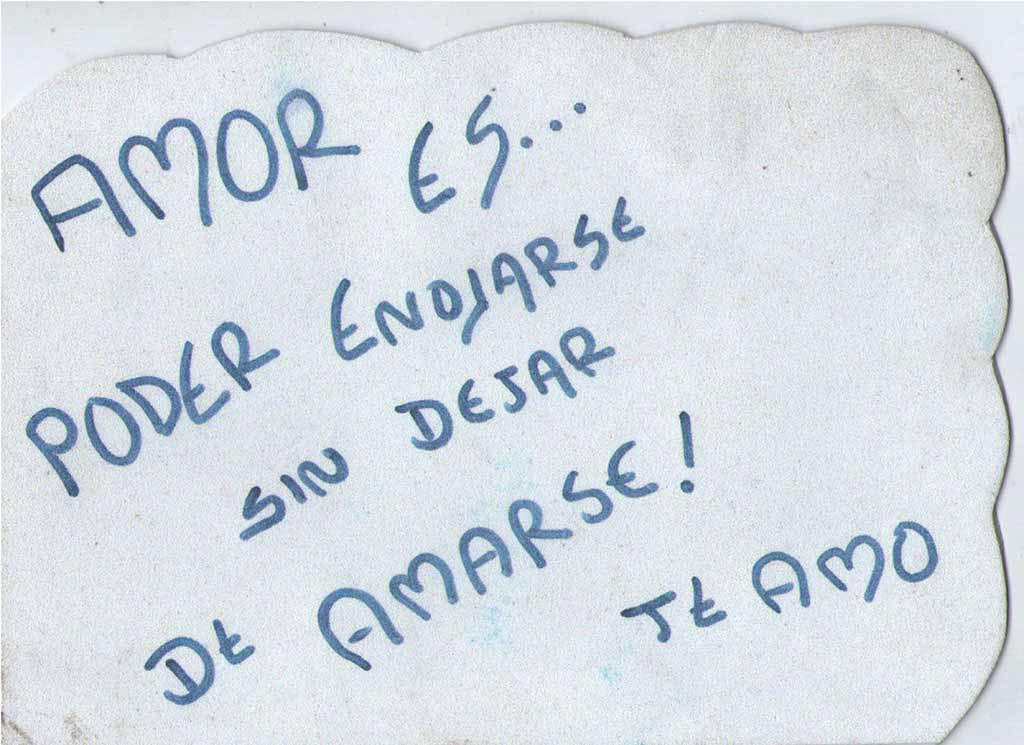 AMOR ES...
PODER ENOJARSE
SIN DEJAR
DE AMARSE!
TE AMO